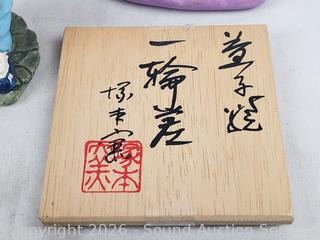 益子焼
一輪差
塚本窯
Copyright 2026 - Sound Auction Service